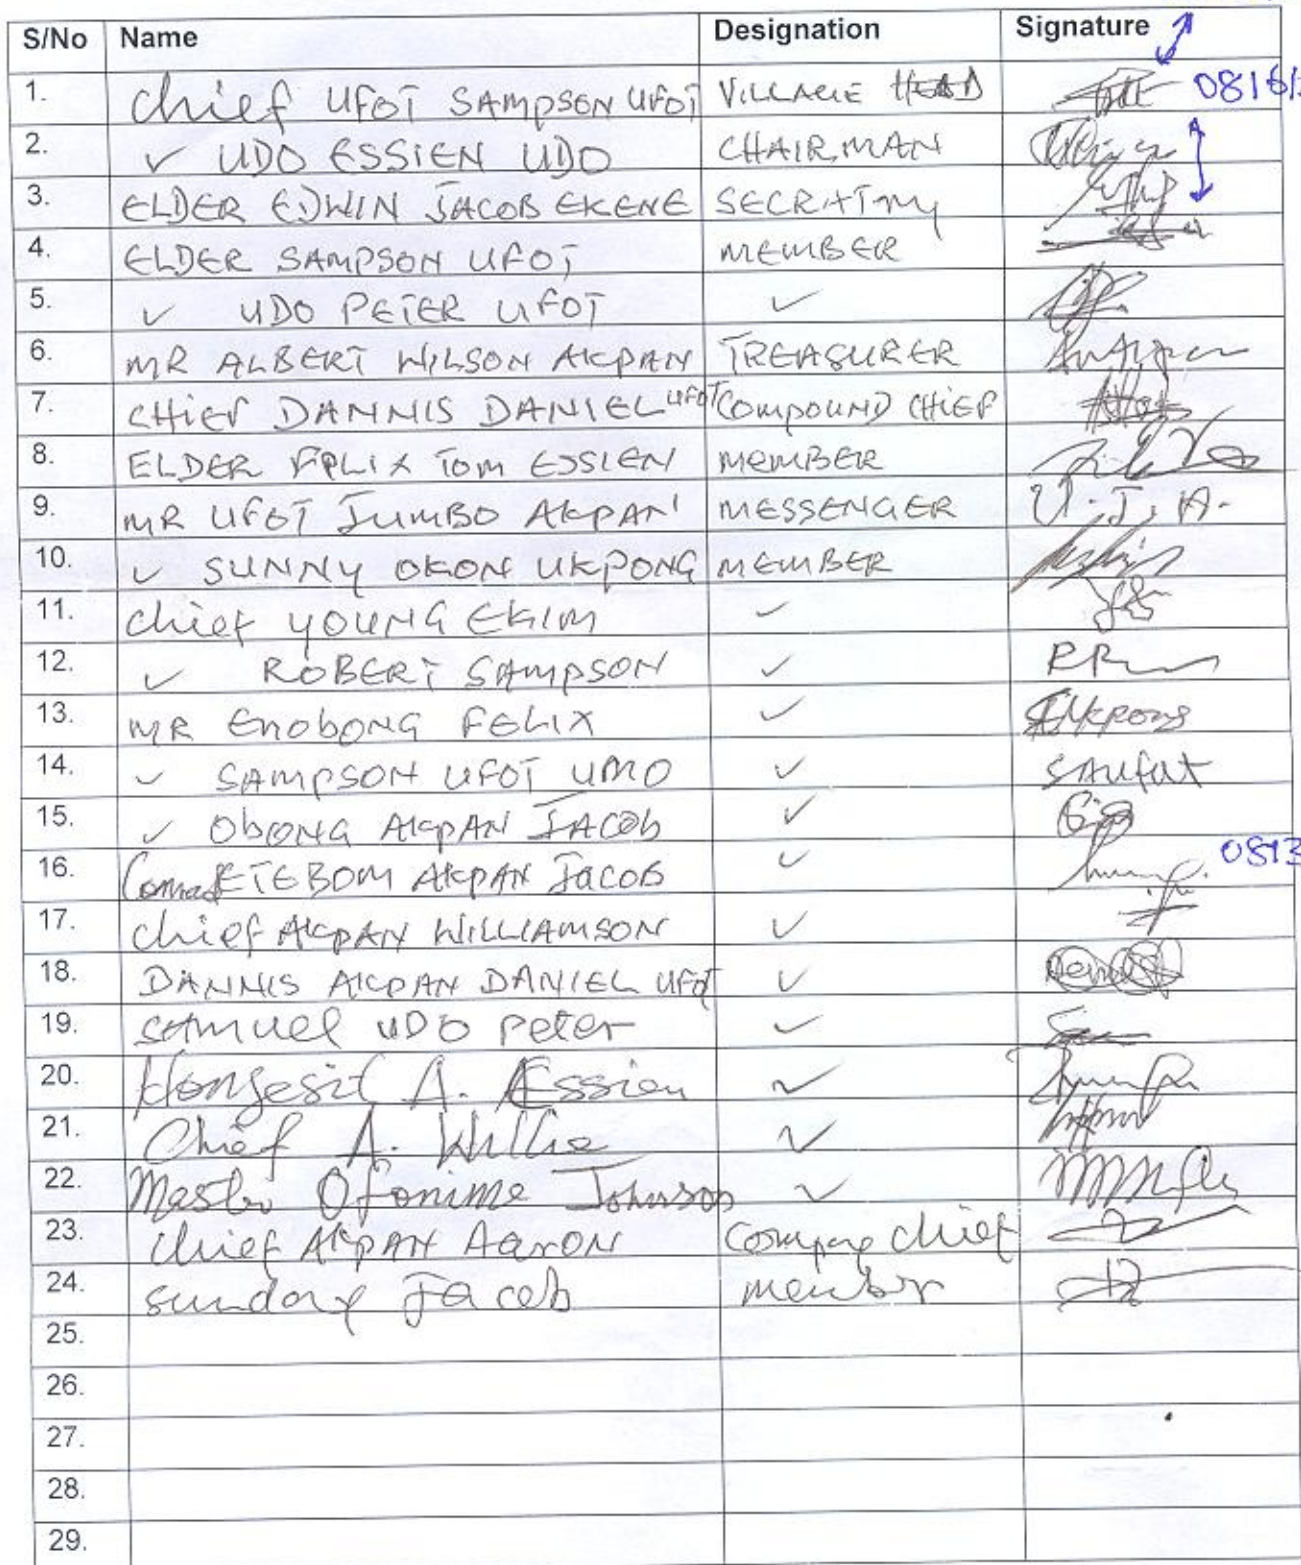 S/No Name Designation Signature
1. Chief UFOT SAMPSON UFOT VILLAGE HEAD 0816
2. ✓ UDO ESSIEN UDO CHAIRMAN
3. ELDER EDWIN JACOB EKENE SECRATARY
4. ELDER SAMPSON UFOT MEMBER
5. ✓ UDO PETER UFOT ✓
6. MR ALBERT WILSON AKPAN TREASURER
7. CHIEF DANNIS DANIEL UFOT COMPOUND CHIEF
8. ELDER FELIX TOM ESSIEN MEMBER
9. MR UFOT JUMBO AKPAN MESSENGER U.J.A.
10. ✓ SUNNY OKON UKPONG MEMBER
11. Chief YOUNG EKIM ✓
12. ✓ ROBERT SAMPSON ✓
13. MR ENOBONG FELIX ✓
14. ✓ SAMPSON UFOT UMO ✓
15. ✓ OBONG AKPAN JACOB ✓
16. ETEBOM AKPAN JACOB ✓ 0813
17. Chief AKPAN WILLIAMSON ✓
18. DANNIS AKPAN DANIEL UFOT ✓
19. SAMUEL UDO Peter ✓
20. A. Essien ✓
21. Chief A. Willie ✓
22. Master Ofonime Johnson ✓
23. Chief AKPAN AARON chief
24. Sunday Jacob member
25.
26.
27.
28.
29.